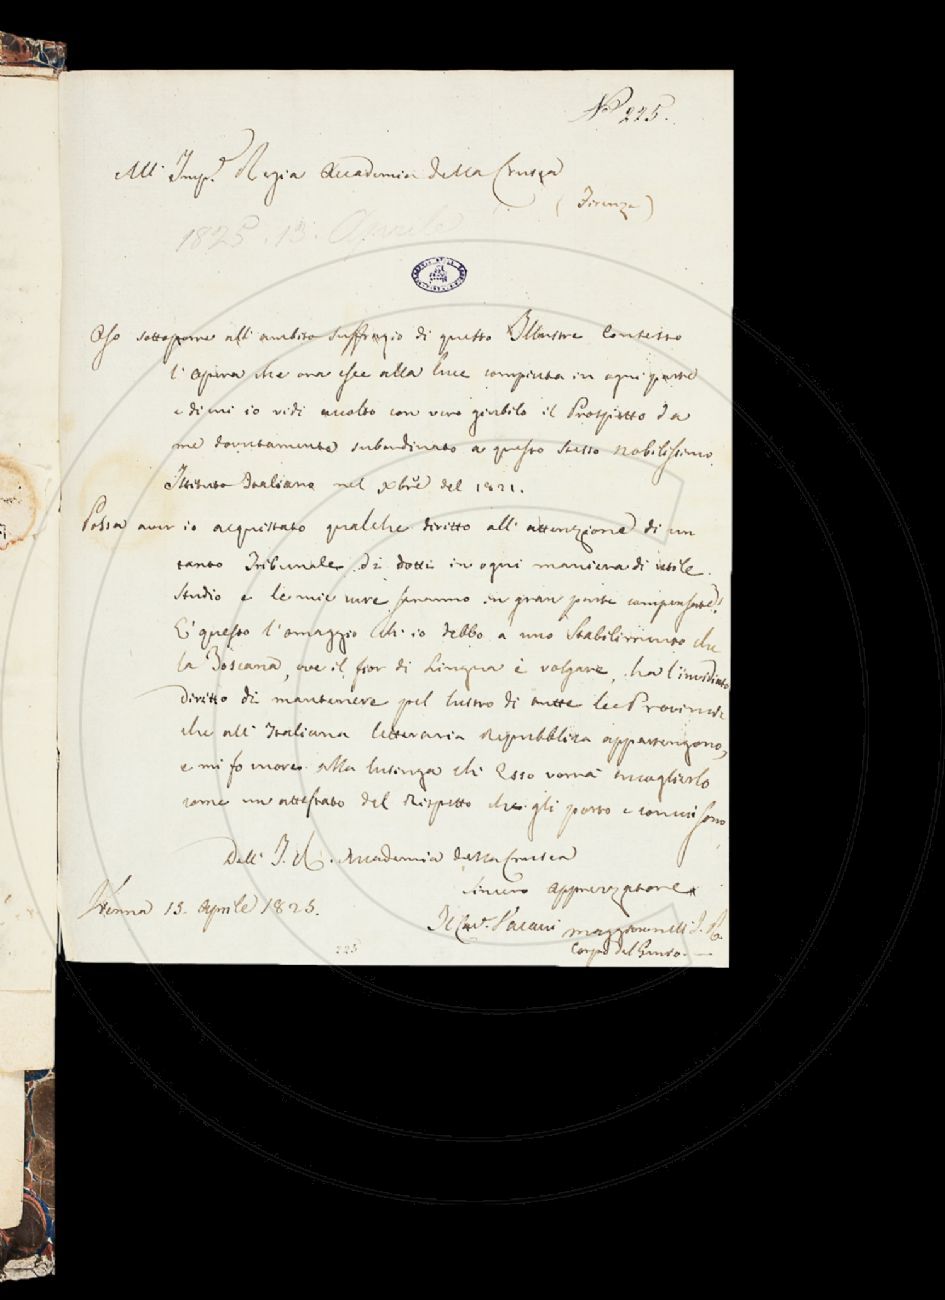 N.º 225.
All' Imp.e Regia Accademia della Crusca
( Firenze )
1825. 13. Aprile
Oso sottoporre all'ambito suffragio di questo Illustre Consesso
l'opera che ora esce alla luce compiuta in ogni parte
e di cui io vidi accolto con vero giubilo il Prospetto da
me dovutamente subordinato a questo stesso nobilissimo
Istituto Italiano nel Xbre del 1821.
Possa aver io acquistato qualche diritto all'attenzione di un
tanto Tribunale di dotti in ogni maniera di utile
studio e le mie cure saranno in gran parte compensate!
E' questo l'omaggio ch'io debbo a uno Stabilimento che
la Toscana, ove il fior di Lingua è volgare, ha l'invidiato
diritto di mantenere pel lustro di tutte le Provincie
che all'Italiana letteraria Repubblica appartengono,
e mi fo more alla lusinga ch'Esso vorrà accoglierlo
come un attestato del Rispetto che gli porto e con cui sono
Dell' I. R. Accademia della Crusca
sincero apprezzatore
Vienna 13. Aprile 1825.
Il Cav.r Pacani maggiore nell' I. R.
Corpo del Genio.
225